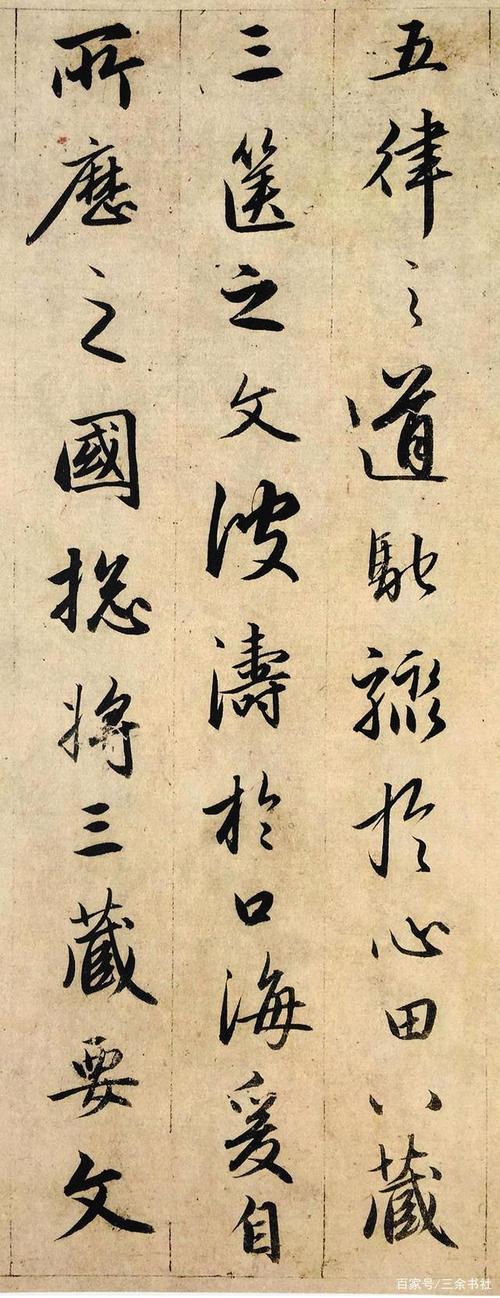 五律之道馳驟於心田八藏
三篋之文波濤於口海爰自
所歷之國揔將三藏要文
百家号/三余书社